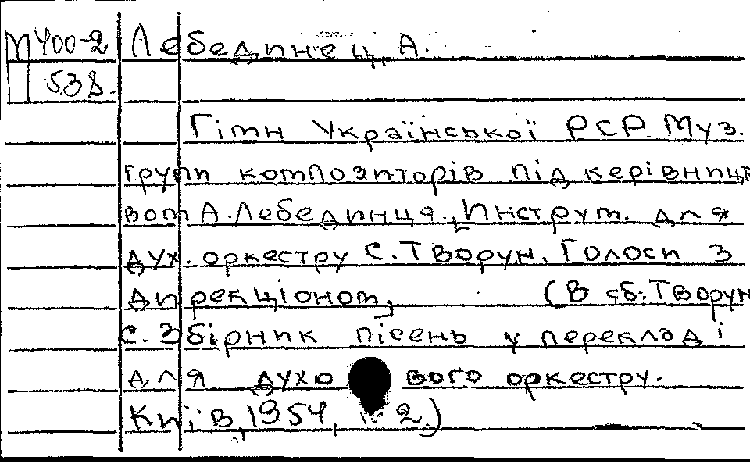 М400-2 Лебединец, А.
538.
Гімн Української РСР. Муз.
групи композиторів під керівницт
вом А. Лебединця. Инструт. для
дух. оркестру С. Творун. Голоси з
дирекціоном, (В сб: Творун
С. Збірник пісень у перекладі
для духо вого оркестру.
Київ, 1954, № 2.)